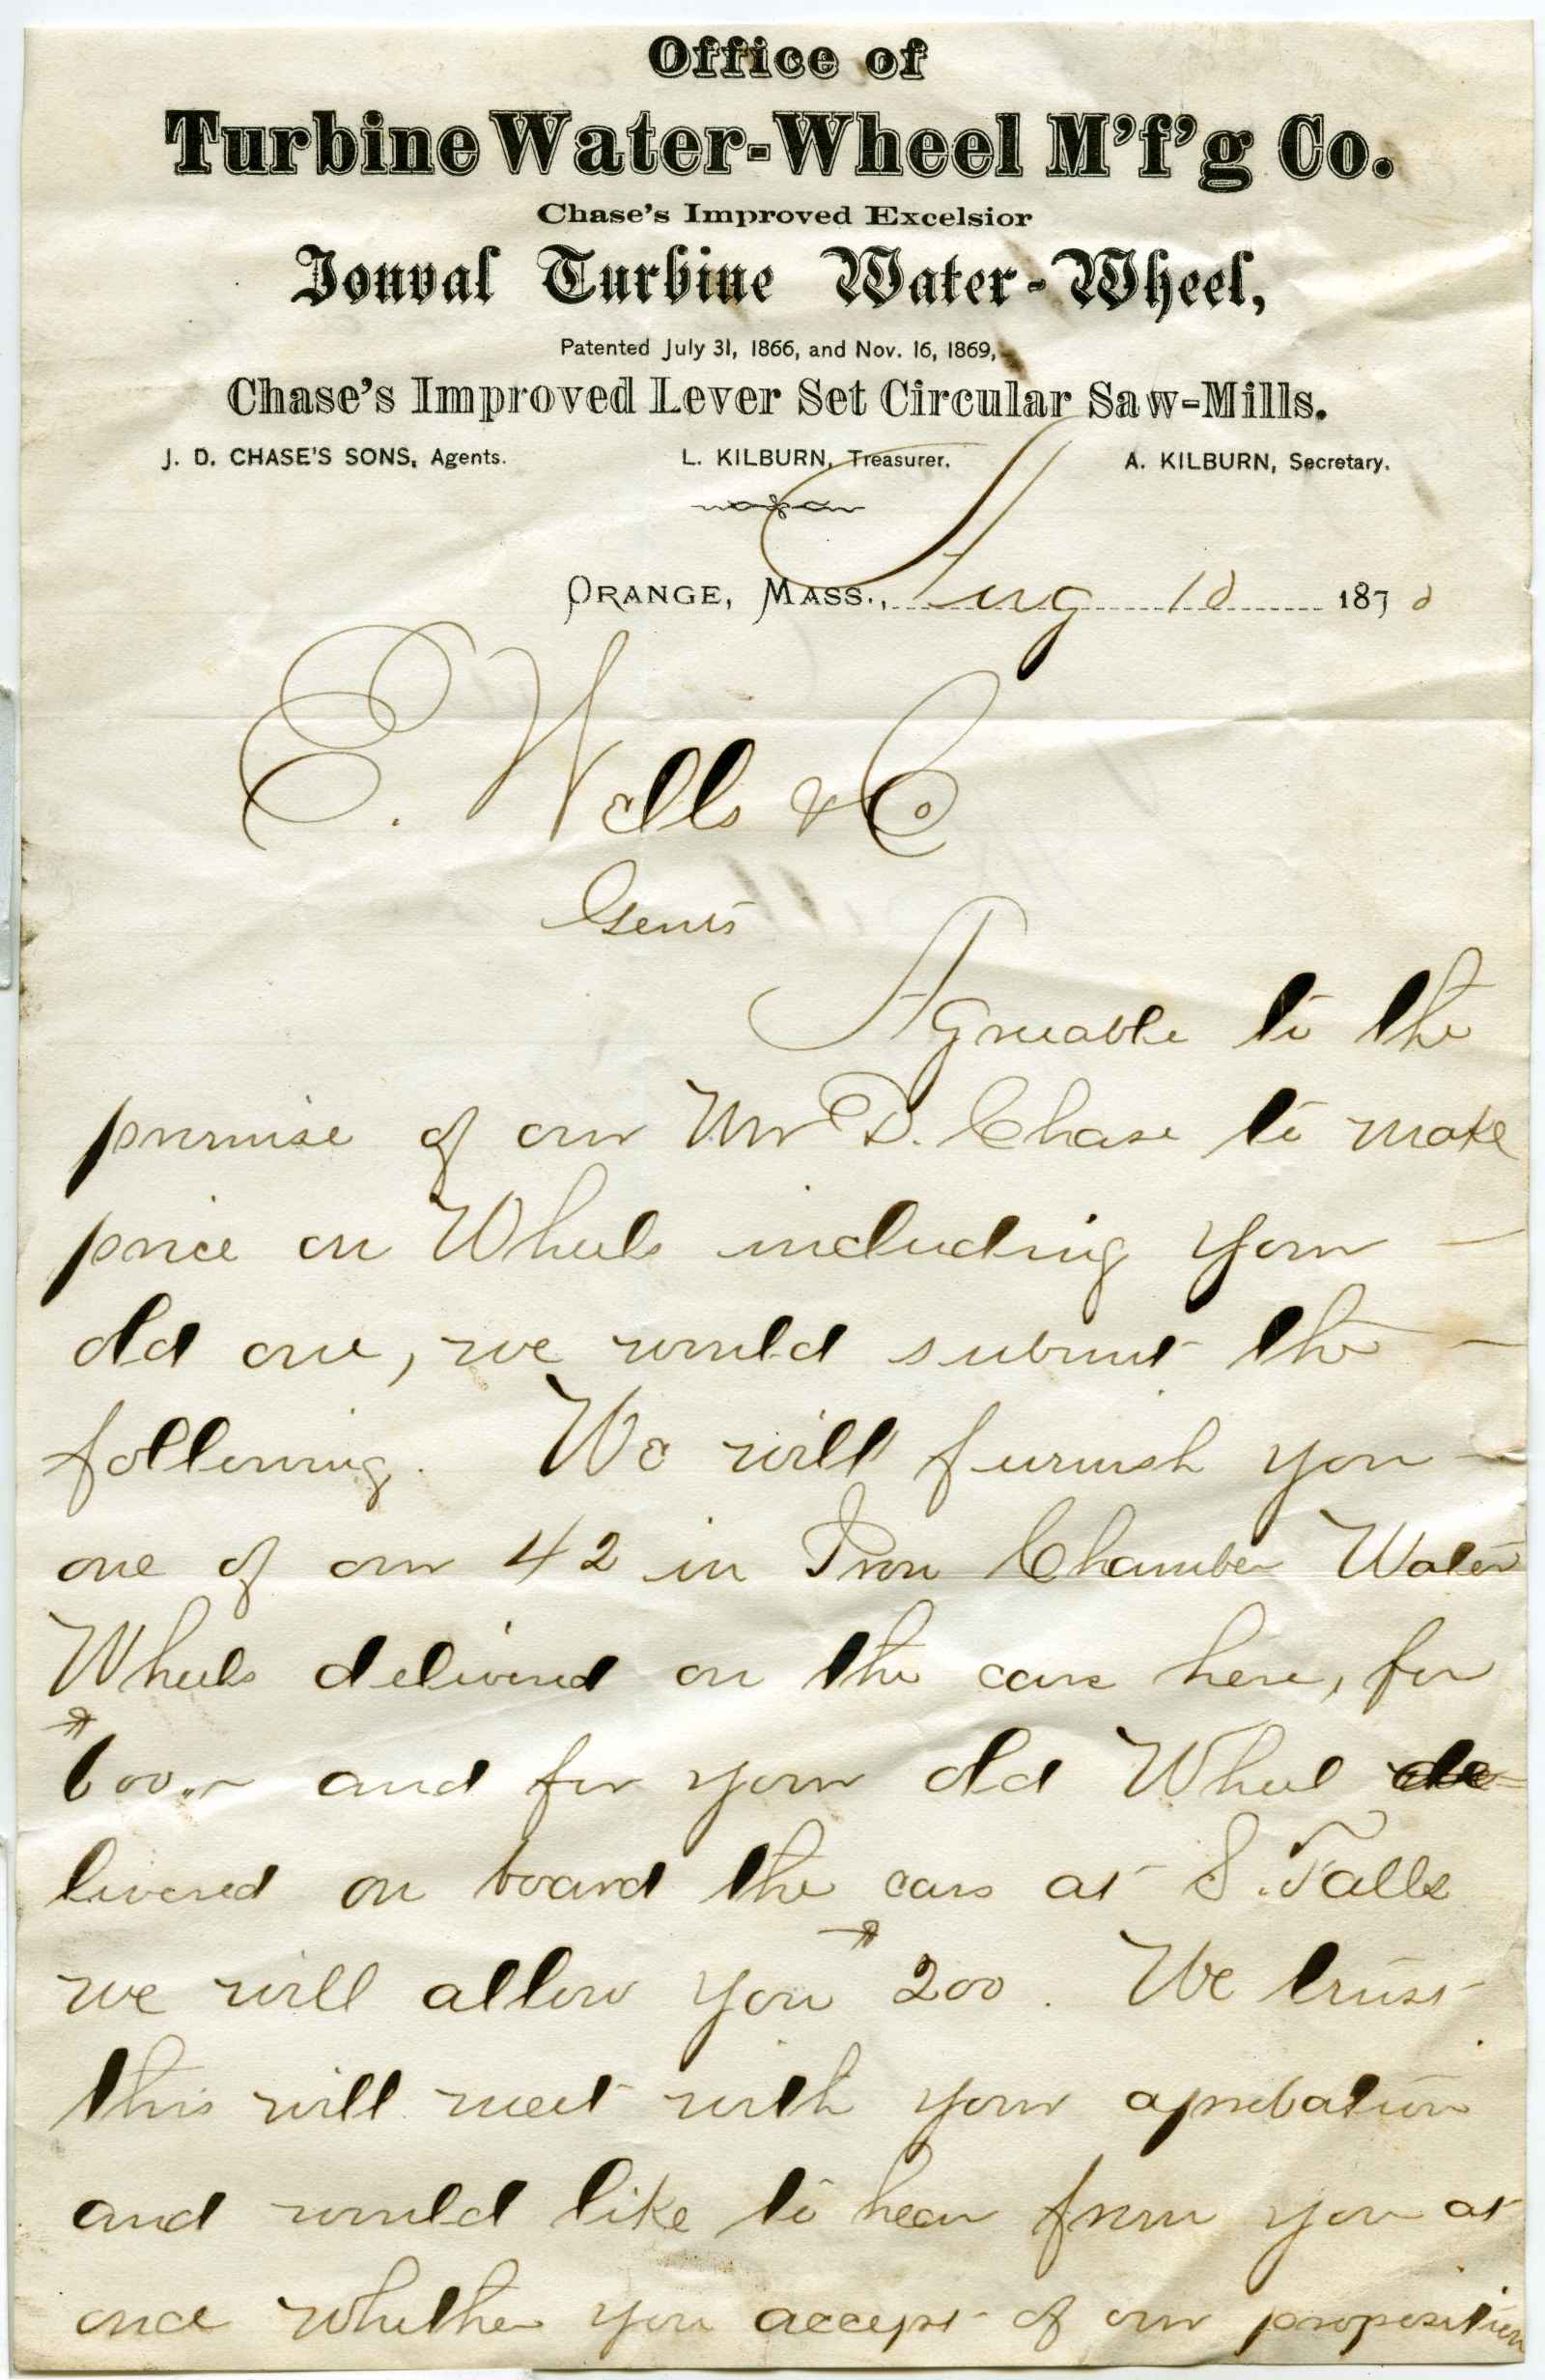 Office of
Turbine Water-Wheel M'f'g Co.
Chase's Improved Excelsior
Jonval Turbine Water-Wheel,
Patented July 31, 1866, and Nov. 16, 1869,
Chase's Improved Lever Set Circular Saw-Mills.
J. D. CHASE'S SONS, Agents. L. KILBURN, Treasurer. A. KILBURN, Secretary.
ORANGE, MASS., Aug 10 1870
E. Wells & Co
Gents
Agreable to the
promise of our Mr D. Chase to make
price on Wheels including your
old one, we would submit the
following. We will furnish you
one of our 42 in Iron Chamber Water
Wheels delivered on the cars here, for
$600.. and for your old Wheel de=
livered on board the cars at S. Falls
we will allow you $200. We trust
this will meet with your aprobation
and would like to hear from you at
once whether you accept of our proposition